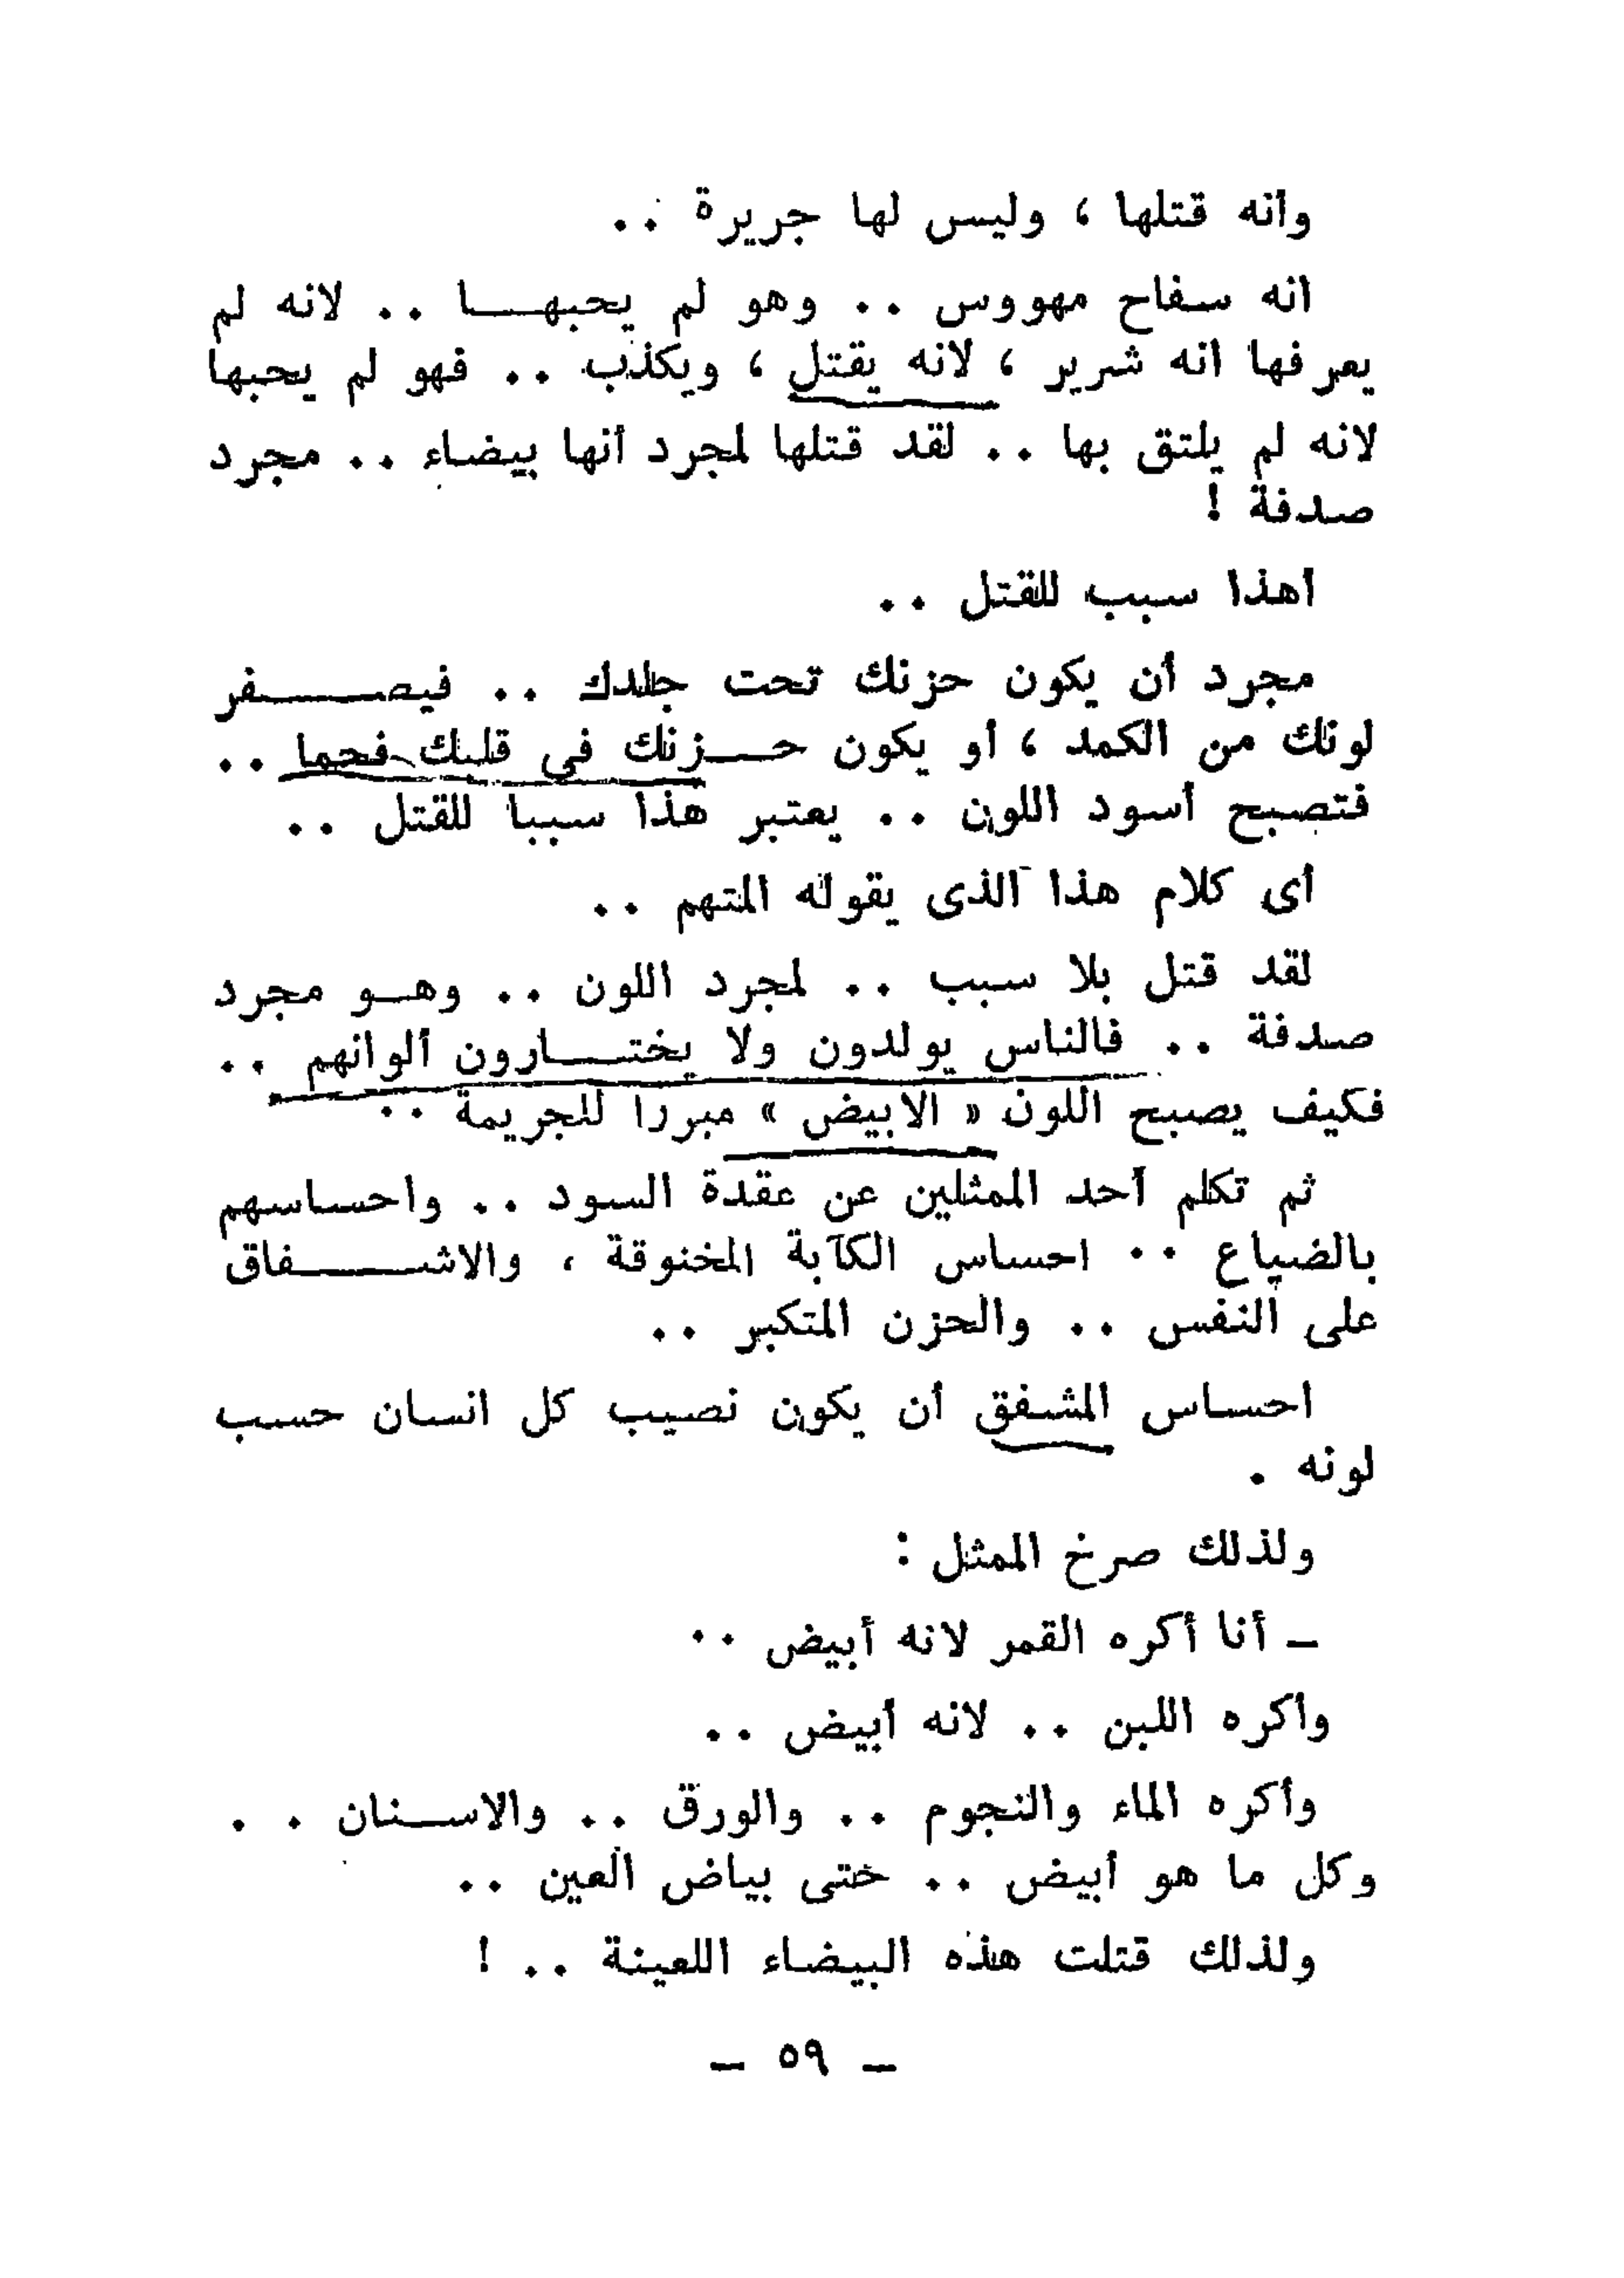 وأنه قتلها ، وليس لها جريرة ..
انه سفاح مهووس .. وهو لم يحبهـــا .. لانه لم
يعرفها انه شرير ، لانه يقتل ، ويكذب .. فهو لم يحبها
لانه لم يلتق بها .. لقد قتلها لمجرد أنها بيضاء .. مجرد
صدفة !
أهذا سبب للقتل ..
مجرد أن يكون حزنك تحت جلدك .. فيصـــــفر
لونك من الكمد ، أو يكون حـــزنك في قلبك فحما ..
فتصبح أسود اللون .. يعتبر هذا سببا للقتل ..
أى كلام هذا الذى يقوله المتهم ..
لقد قتل بلا سبب .. لمجرد اللون .. وهــو مجرد
صدفة .. فالناس يولدون ولا يختـــارون ألوانهم ..
فكيف يصبح اللون « الابيض » مبررا للجريمة ..
ثم تكلم أحد الممثلين عن عقدة السود .. واحساسهم
بالضياع .. احساس الكآبة المخنوقة ، والاشـــــفاق
على النفس .. والحزن المتكبر ..
احساس المشفق أن يكون نصيب كل انسان حسب
لونه .
ولذلك صرخ الممثل :
— أنا أكره القمر لانه أبيض ..
وأكره اللبن .. لانه أبيض ..
وأكره الماء والنجوم .. والورق .. والاســـنان . .
وكل ما هو أبيض .. حتى بياض العين ..
ولذلك قتلت هذه البيضاء اللعينة .. !
— ٥٩ —